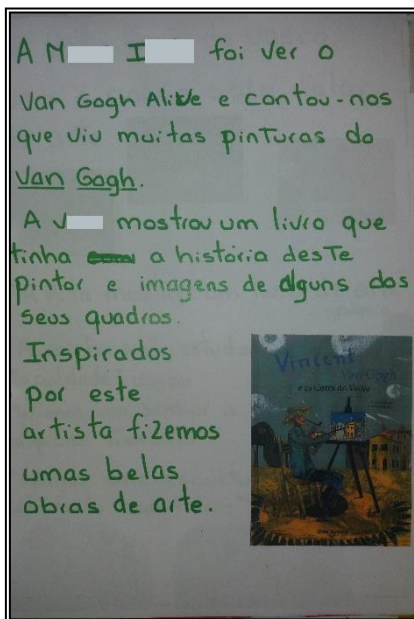 A M I foi ver o
Van Gogh Alive e contou-nos
que viu muitas pinturas do
Van Gogh.
A V mostrou um livro que
tinha a história deste
pintor e imagens de alguns dos
seus quadros.
Inspirados
por este
artista fizemos
umas belas
obras de arte.
Vincent
Van Gogh
e as Cores do Vento